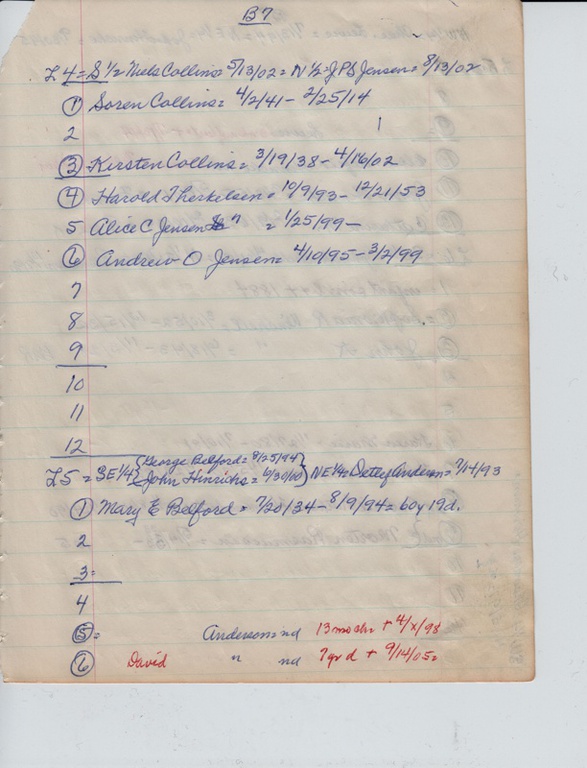 B7
L4 = S 1/2 Niels Collins = 5/13/02 = N 1/2 = J.P.S Jensen = 8/13/02
① Soren Collins = 4/2/41 - 2/25/14
2
③ Kirsten Collins = 3/19/38 - 4/16/02
④ Harold Therkelsen = 10/9/93 - 12/21/53
5 Alice C Jensen " = 1/25/99 -
⑥ Andrew O Jensen = 4/10/95 - 3/2/99
7
8
9
10
11
12
L5 = SE 1/4 { George Belford = 8/25/94
John Hinrichs = 6/30/00 } NE 1/4 = Detlef Anderson = 7/14/93
① Mary E Belford = 7/20/34 - 8/9/94 = 60y 19d.
2
3 =
4
⑤ = Anderson = nd 13 mo chr + 4/x/98
⑥ David " nd 7yr d + 9/14/05 =